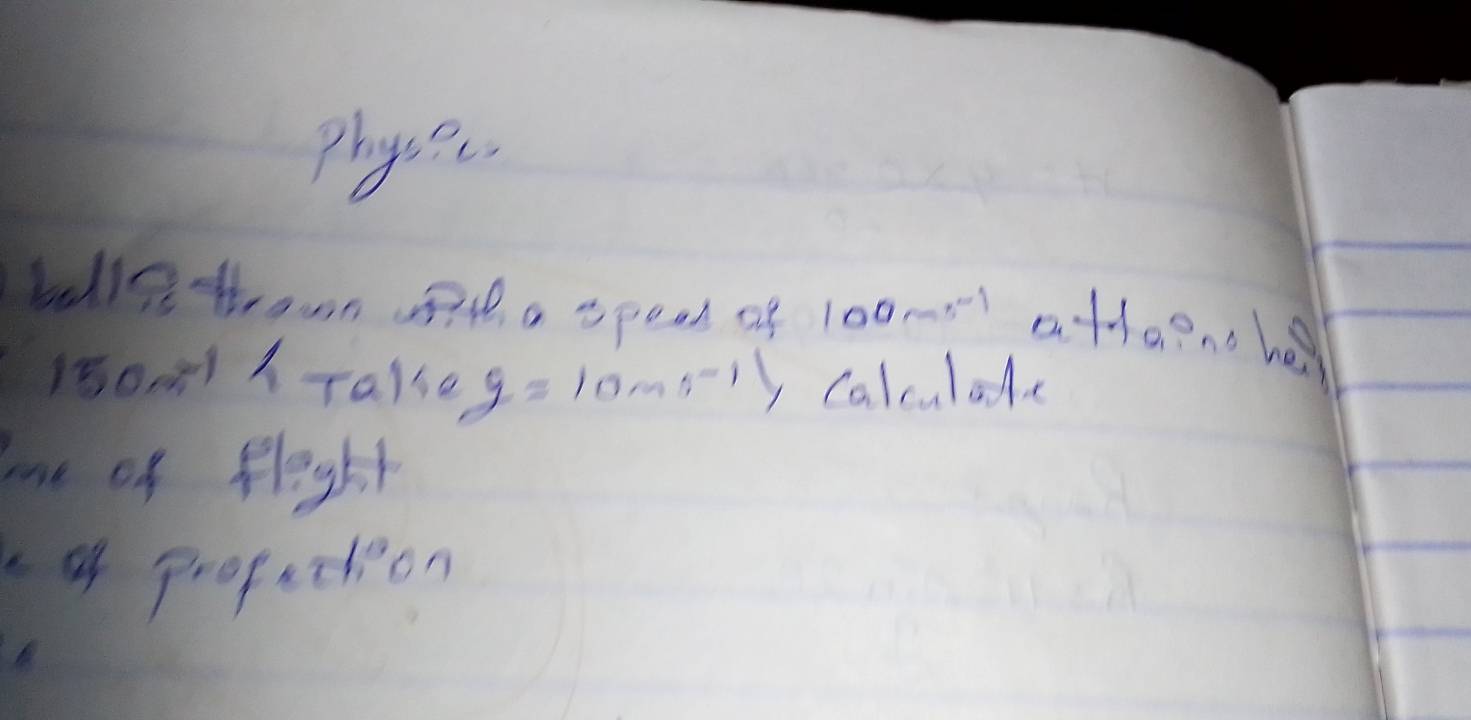 Physics
ball is thrown with a speed of 100ms-1 attains hei
150m-1 (Take g = 10ms-1) Calculate
me of flight
of projection